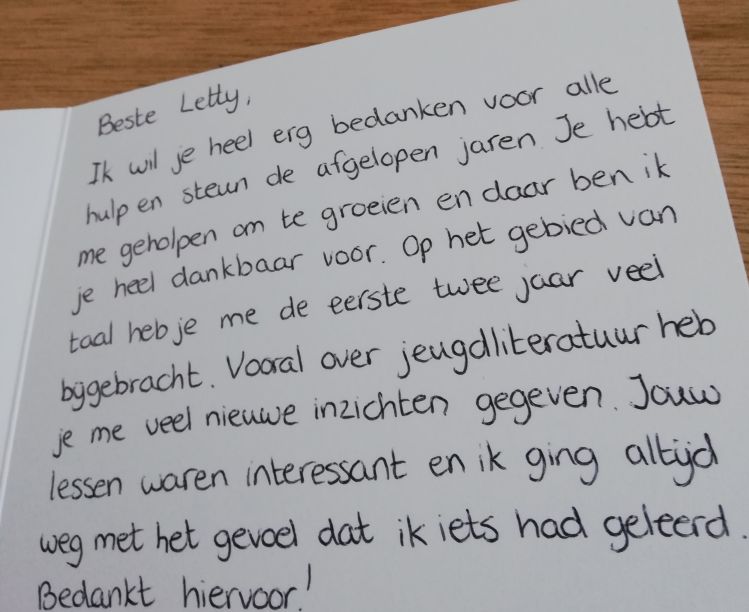 Beste Letty,
Ik wil je heel erg bedanken voor alle
hulp en steun de afgelopen jaren. Je hebt
me geholpen om te groeien en daar ben ik
je heel dankbaar voor. Op het gebied van
taal heb je me de eerste twee jaar veel
bijgebracht. Vooral over jeugdliteratuur heb
je me veel nieuwe inzichten gegeven. Jouw
lessen waren interessant en ik ging altijd
weg met het gevoel dat ik iets had geleerd.
Bedankt hiervoor!